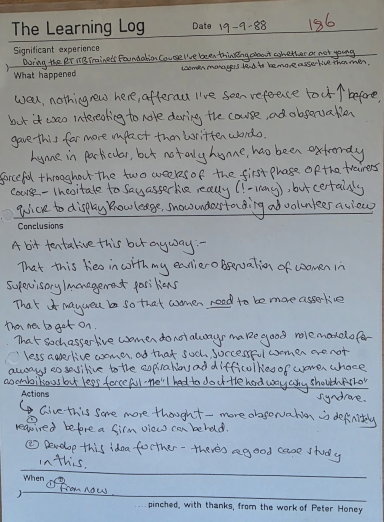 The Learning Log Date 19-9-88 186
Significant experience
During the RTITB Trainers Foundation Course I've been thinking about whether or not young
women managers tend to be more assertive than men.
What happened
Well, nothing new here, after all I've seen reference to it ↑ before,
but it was interesting to note during the course, ad observation
gave this far more impact than written words.
Lynne in particular, but not only Lynne, has been extremely
forceful throughout the two weeks of the first phase of the trainers
course - I hesitate to say assertive really (!- irony), but certainly
quick to display knowledge, show understanding ad volunteer a view
Conclusions
A bit tentative this but anyway:-
That this ties in with my earlier observation of women in
supervisory/management positions
That it may well be so that women need to be more assertive
than men to get on.
That such assertive women do not always make good role models for
less assertive women ad that such, successful women are not
always so sensitive to the aspirations ad difficulties of women who are
as ambitious but less forceful - the "I had to do it the hard way why shouldn't so"
syndrome.
Actions
① Give this some more thought - more observation is definitely
required before a firm view can be held.
② Develop this idea further - there's a good case study
in this.
When
①② from now
....pinched, with thanks, from the work of Peter Honey